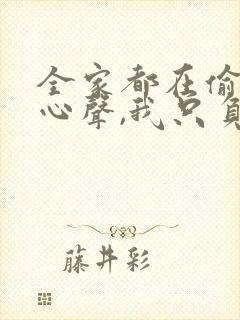 全家都在偷
心聲,我只負
藤井彩